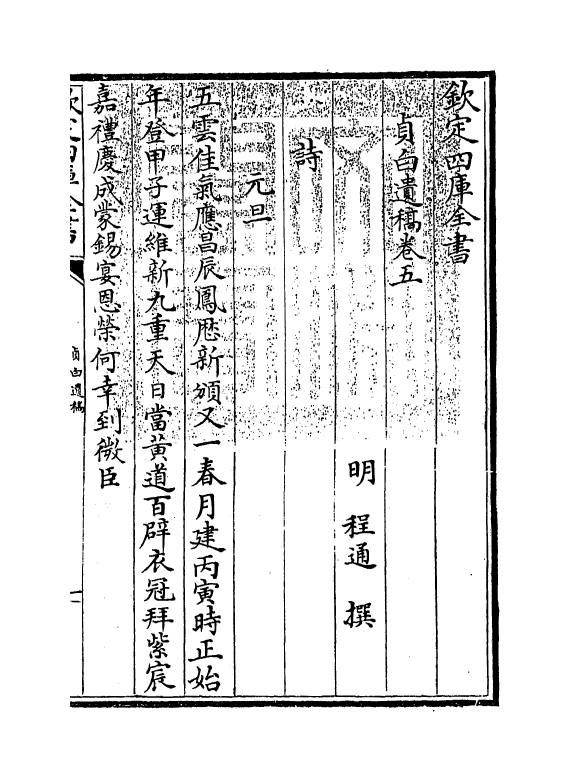 欽定四庫全書
貞白遺稿卷五
明 程通 撰
詩
元旦
五雲佳氣應昌辰鳳厯新頒又一春月建丙寅時正始
年登甲子運維新九重天日當黃道百辟衣冠拜紫宸
嘉禮慶成蒙錫宴恩榮何幸到微臣
欽定四庫全書
貞白遺稿
一